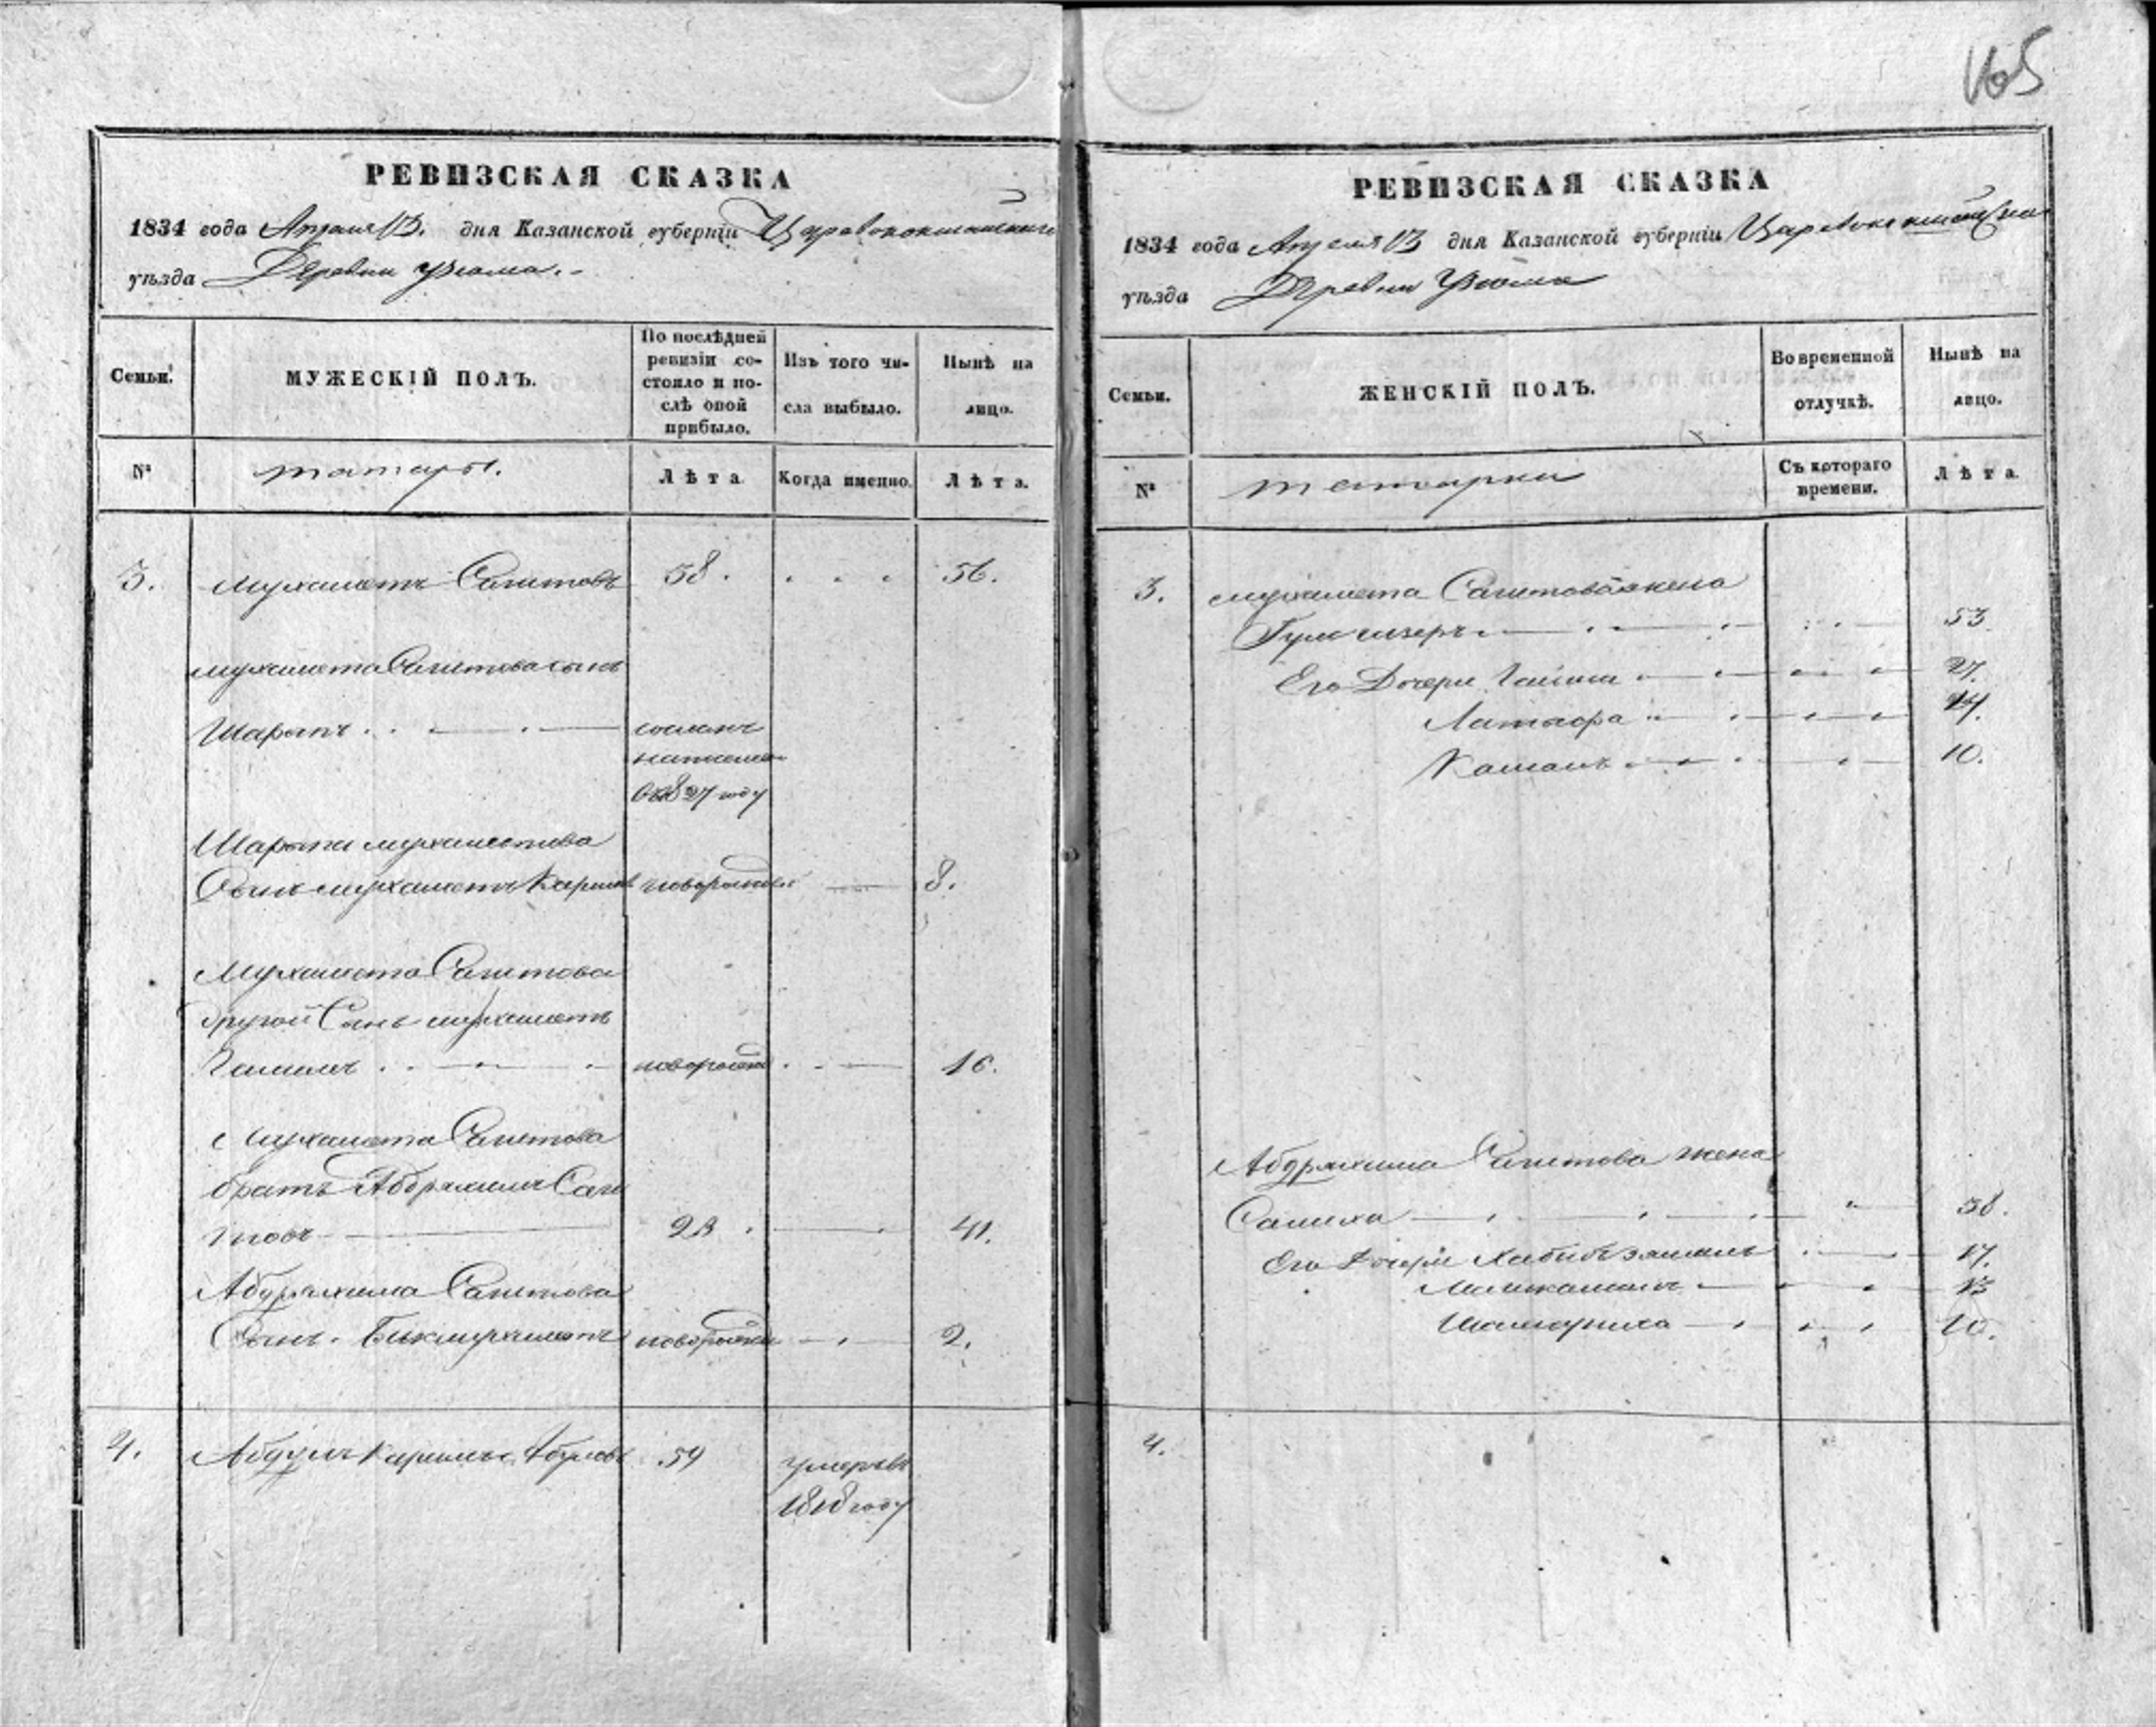 165
РЕВИЗСКАЯ СКАЗКА
1834 года Апреля 13. дня Казанской губерніи Царевококшайскаго
уѣзда Деревни Уьюма.
Семьи.
МУЖЕСКІЙ ПОЛЪ.
По послѣдней ревизіи со-
стояло и по-
слѣ оной
прибыло.
Изъ того чи-
сла выбыло.
Нынѣ на
лицо.
№
татары.
Лѣта
Когда именно.
Лѣта.
3. Мухаметъ Сагитовъ 38. 56.
Мухамета Сагитова сынъ
Шарыпъ
сосланъ
на поселен
въ 1827 году
Шарыпа Мухаметева
Сынъ Мухаметъ Каримъ новорожден 8.
Мухамета Сагитова
другой Сынъ Мухаметъ
Галимъ новорожден 16.
Мухамета Сагитова
братъ Абдряхимъ Саги
товъ 23. 41.
Абдряхима Сагитова
Сынъ Бикмухаметъ новорожден 2.
4. Абдулъ Каримъ 59 умеръ въ
1818 году
РЕВИЗСКАЯ СКАЗКА
1834 года Апреля 13 дня Казанской губерніи Царевококшайска
уѣзда Деревни Уьюма
Семьи.
ЖЕНСКІЙ ПОЛЪ.
Во временной
отлучкѣ.
Нынѣ на
лицо.
№
татарки
Съ котораго
времени.
Лѣта
3. Мухамета Сагитова жена
53.
Его Дочери 27.
10.
Абдряхима Сагитова жена
Салиха 38.
Его Дочери Хабибъзямалъ 17.
Маликамалъ 13
10.
4.